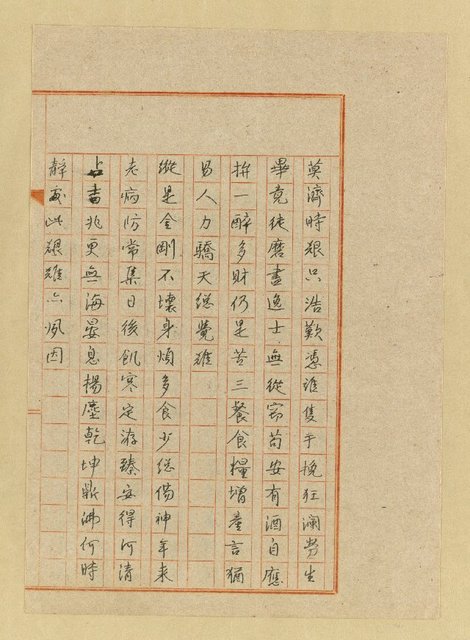 莫濟時艱只浩歎憑誰隻手挽狂瀾勞生
畢竟徒磨盡逸士無從苟安有酒自應
拚一醉多財仍是苦三餐食糧增產言猶
易人力驕天總覺難
縱是金剛不壞身煩多食少總傷神年來
老病防常集日後飢寒定洊臻安得河清
占書兆更無海晏息揚塵乾坤鼎沸何時
靜處此艱難亦夙因